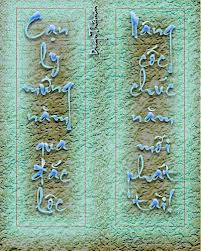 Cạn
ly
mừng
năm
qua
đắc
lộc
Nâng
cốc
chúc
năm
mới
phát
tài!